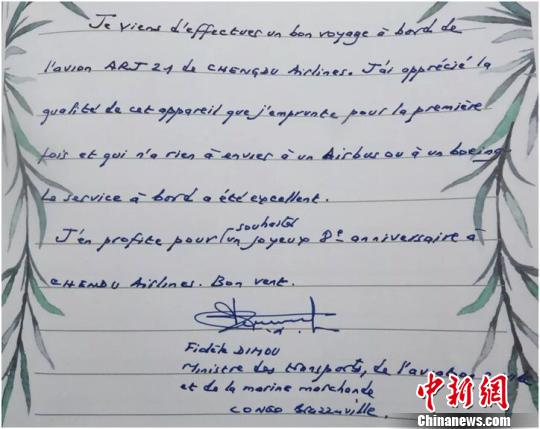 Je viens d'effectuer un bon voyage à bord de
l'avion ARJ 21 de CHENGDU Airlines. J'ai apprécié la
qualité de cet appareil que j'emprunte pour la première
fois et qui n'a rien à envier à un Airbus ou à un boeing.
Le service à bord a été excellent.
souhaiter
J'en profite pour un joyeux 8e anniversaire à
CHENDU Airlines. Bon vent.
Fidèle DIMOU
Ministre des transports, de l'aviation
et de la marine marchande
CONGO Brazzaville.
中新网
Chinanews.com